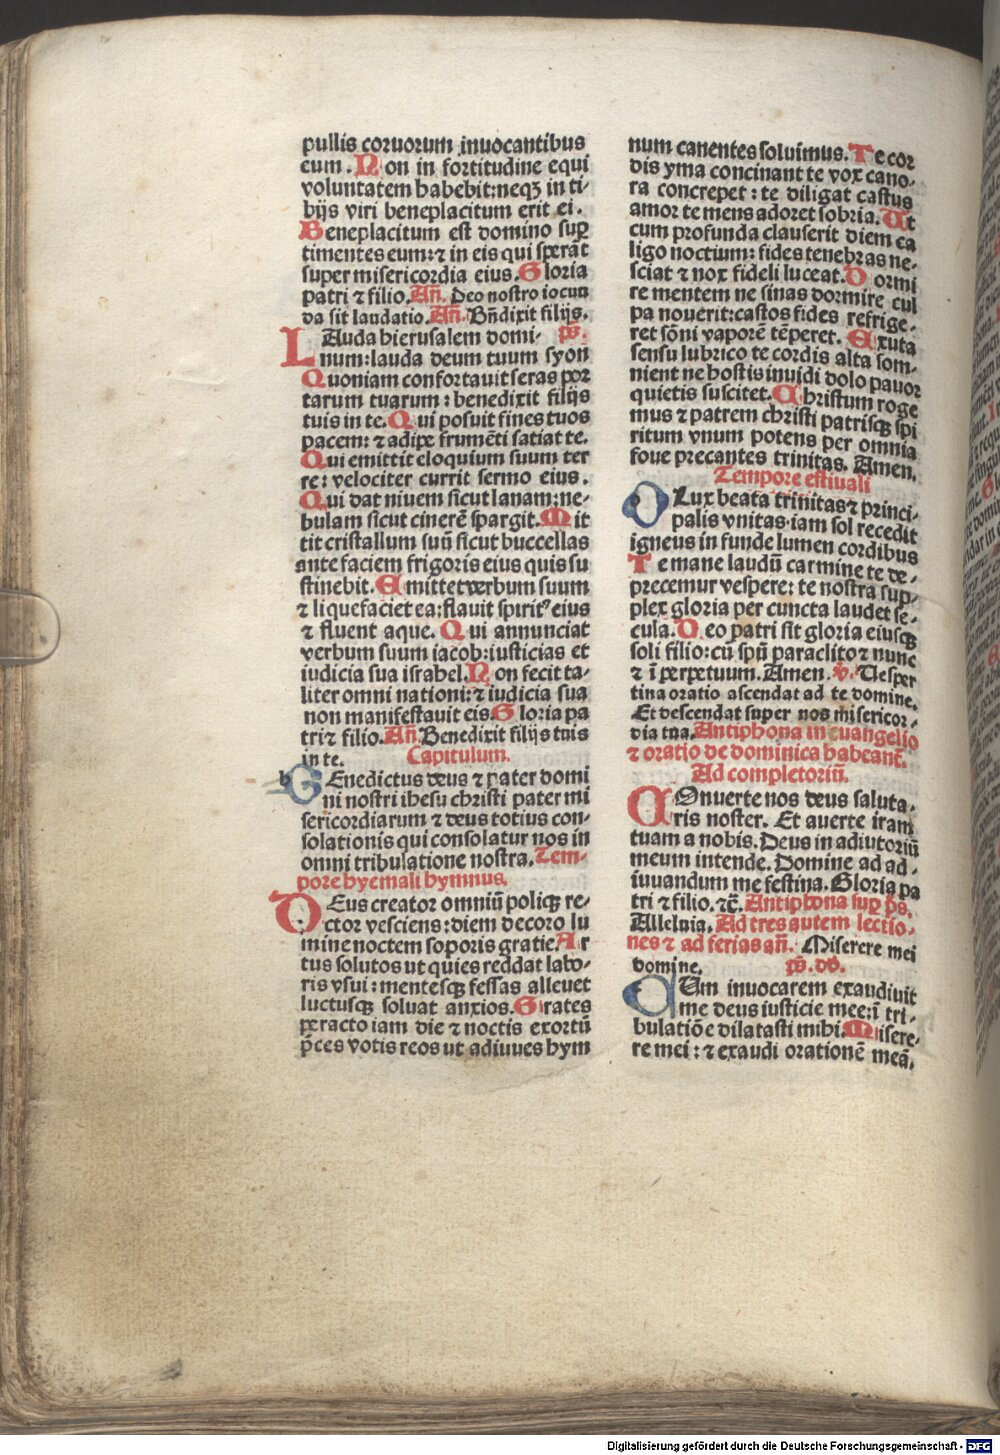 pullis coruorum inuocantibus
eum. Non in fortitudine equi
voluntatem habebit:neqꝫ in ti-
bijs viri beneplacitum erit ei.
Beneplacitum est domino suꝑ
timentes eum:⁊ in eis qui sperāt
super misericordia eius. Gloria
patri ⁊ filio. Añ. Deo nostro iocun
da sit laudatio. Añ. Bn̄dixit filijs.
LAuda hierusalem domi- ps̄.
num:lauda deum tuum syon
Quoniam confortauit seras por
tarum tuarum: benedixit filijs
tuis in te. Qui posuit fines tuos
pacem: ⁊ adipe frumēti satiat te.
Qui emittit eloquium suum ter
re: velociter currit sermo eius.
Qui dat niuem sicut lanam:ne-
bulam sicut cinerē spargit. Mit
tit cristallum suū sicut buccellas
ante faciem frigoris eius quis su
stinebit. Emittet verbum suum
⁊ liquefaciet ea: flauit spiritꝰ eius
⁊ fluent aque. Qui annunciat
verbum suum iacob:iusticias et
iudicia sua israhel. Non fecit ta-
liter omni nationi:⁊ iudicia sua
non manifestauit eis. Gloria pa
tri ⁊ filio. Añ. Benedixit filijs tuis
in te. Capitulum.
BEnedictus deus ⁊ pater domi
ni nostri ihesu christi pater mi
sericordiarum ⁊ deus totius con-
solationis qui consolatur nos in
omni tribulatione nostra. Tem-
pore hyemali hymnus.
DEus creator omniū poliqꝫ re-
ctor vesciens:diem decoro lu
mine noctem soporis gratie. Ar
tus solutos ut quies reddat labo-
ris vsui: mentesqꝫ fessas alleuet
luctusqꝫ soluat anxios. Grates
peracto iam die ⁊ noctis exortū
p̄ces votis reos ut adiuues hym
num canentes soluimus. Te cor
dis yma concinant te vox cano-
ra concrepet: te diligat castus
amor te mens adoret sobria. Ut
cum profunda clauserit diem ca
ligo noctium: fides tenebras ne-
sciat ⁊ nox fideli luceat. Dormi
re mentem ne sinas dormire cul
pa nouerit:castos fides refrige-
ret sōni vaporē tēperet. Exuta
sensu lubrico te cordis alta som-
nient ne hostis inuidi dolo pauor
quietis suscitet. Christum roge
mus ⁊ patrem christi patrisqꝫ spi
ritum vnum potens per omnia
foue precantes trinitas. Amen.
Tempore estiuali
OLux beata trinitas ⁊ princi-
palis vnitas·iam sol recedit
igneus in funde lumen cordibus
Te mane laudū carmine te de-
precemur vespere: te nostra sup-
plex gloria per cuncta laudet se-
cula. Deo patri sit gloria eiusqꝫ
soli filio: cū spū paraclito ⁊ nunc
⁊ ī perpetuum. Amen. v. Vesper
tina oratio ascendat ad te domine.
Et descendat super nos misericor-
dia tua. Antiphona in euangelio
⁊ oratio de dominica habeant᷑.
Ad completoriū.
COnuerte nos deus saluta-
ris noster. Et auerte iram
tuam a nobis. Deus in adiutoriū
meum intende. Domine ad ad-
iuuandum me festina. Gloria pa
tri ⁊ filio. ⁊c̄. Antiphona suꝑ ps̄.
Alleluia. Ad tres autem lectio-
nes ⁊ ad ferias añ. Miserere mei
domine. ps̄. dd̄.
CUm inuocarem exaudiuit
me deus iusticie mee: ī tri-
bulatiōe dilatasti mihi. Misere-
re mei: ⁊ exaudi orationē meā.
Digitalisierung gefördert durch die Deutsche Forschungsgemeinschaft - DFG